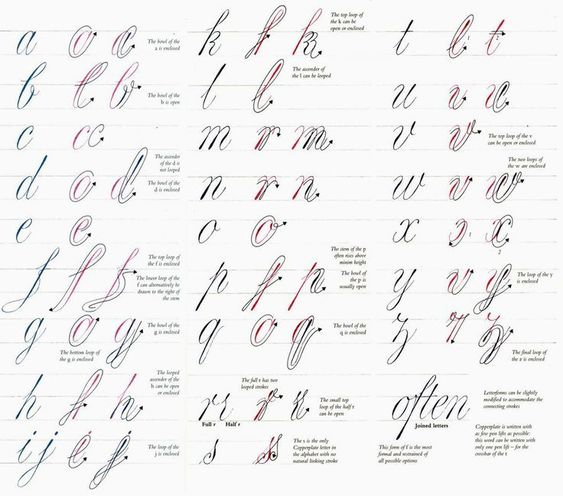 a
The bowl of the
a is enclosed
b
The bowl of the
b is open
c
d
The ascender
of the d is
not looped
The bowl of the
d is enclosed
e
f
The top loop of
the f is enclosed
The lower loop of the
f can alternatively be
drawn to the right of
the stem
g
The bowl of the
g is enclosed
The bottom loop of
the g is enclosed
h
The looped
ascender of the
h can be open
or enclosed
i j
The loop of the
j is enclosed
k
The top loop of
the k can be
open or enclosed
l
The ascender of
the l can be looped
m
n
o
p
The stem of the p
often rises above
minim height
The bowl of
the p is
usually open
q
The bowl of the
q is enclosed
The full r has two
looped strokes
r r
The small top
loop of the half r
can be open
Full r Half r
s
The s is the only
Copperplate letter in
the alphabet with no
natural linking stroke
t
1
2
u
v
The top loop of the v
can be open or enclosed
The two loops of
the w are enclosed
w
x
1
2
y
The loop of the y
is enclosed
z
The final loop of
the z is enclosed
often
Joined letters
This form of f is the most
formal and restrained of
all possible options
Letterforms can be slightly
modified to accommodate the
connecting strokes
Copperplate is written with
as few pen lifts as possible:
this word can be written with
only one pen lift – for the
crossbar of the t